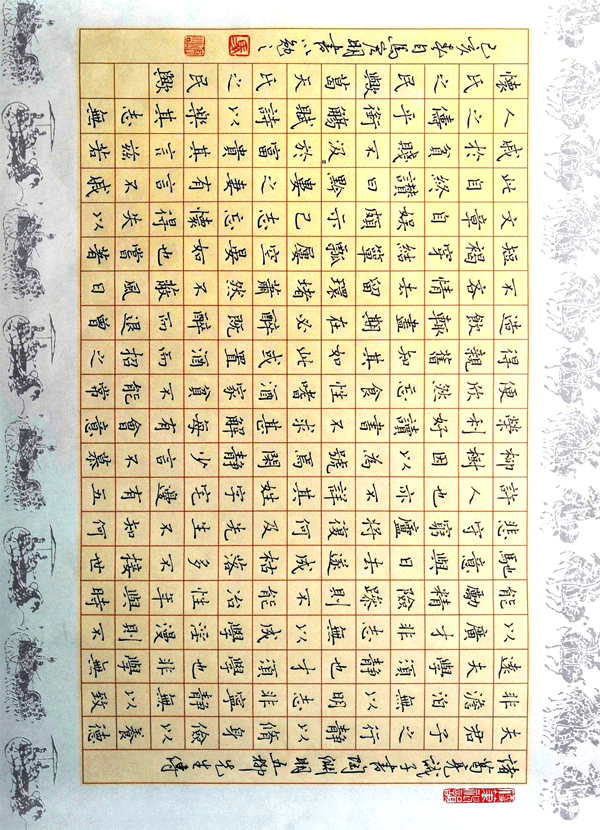 諸葛亮誡子書 陶淵明五柳先生傳
夫君子之行靜以脩身儉以養德
非澹泊無以明志非寧靜無以致
遠夫學須靜也才須學也非學無
以廣才非志無以成學淫漫則不
能勵精險躁則不能冶性年與時
馳意與日去遂成枯落多不接世
悲守窮廬將復何及先生不知何
許人也亦不詳其姓字宅邊有五
柳樹因以為號焉閑靜少言不慕
榮利好讀書不求甚解每有會意
便欣然忘食性嗜酒家貧不能常
得親舊知其如此或置酒而招之
造飲輒盡期在必醉既醉而退曾
不吝情去留環堵蕭然不蔽風日
短褐穿結簞瓢屢空晏如也嘗著
文章自娛頗示己志忘懷得失以
此自終讚曰黔婁之妻有言不戚
戚於貧賤不汲〻於富貴其言茲若
人之儔乎銜觴賦詩以樂其志無
懷氏之民歟葛天氏之民歟
己亥春日馬宏明書以勉之